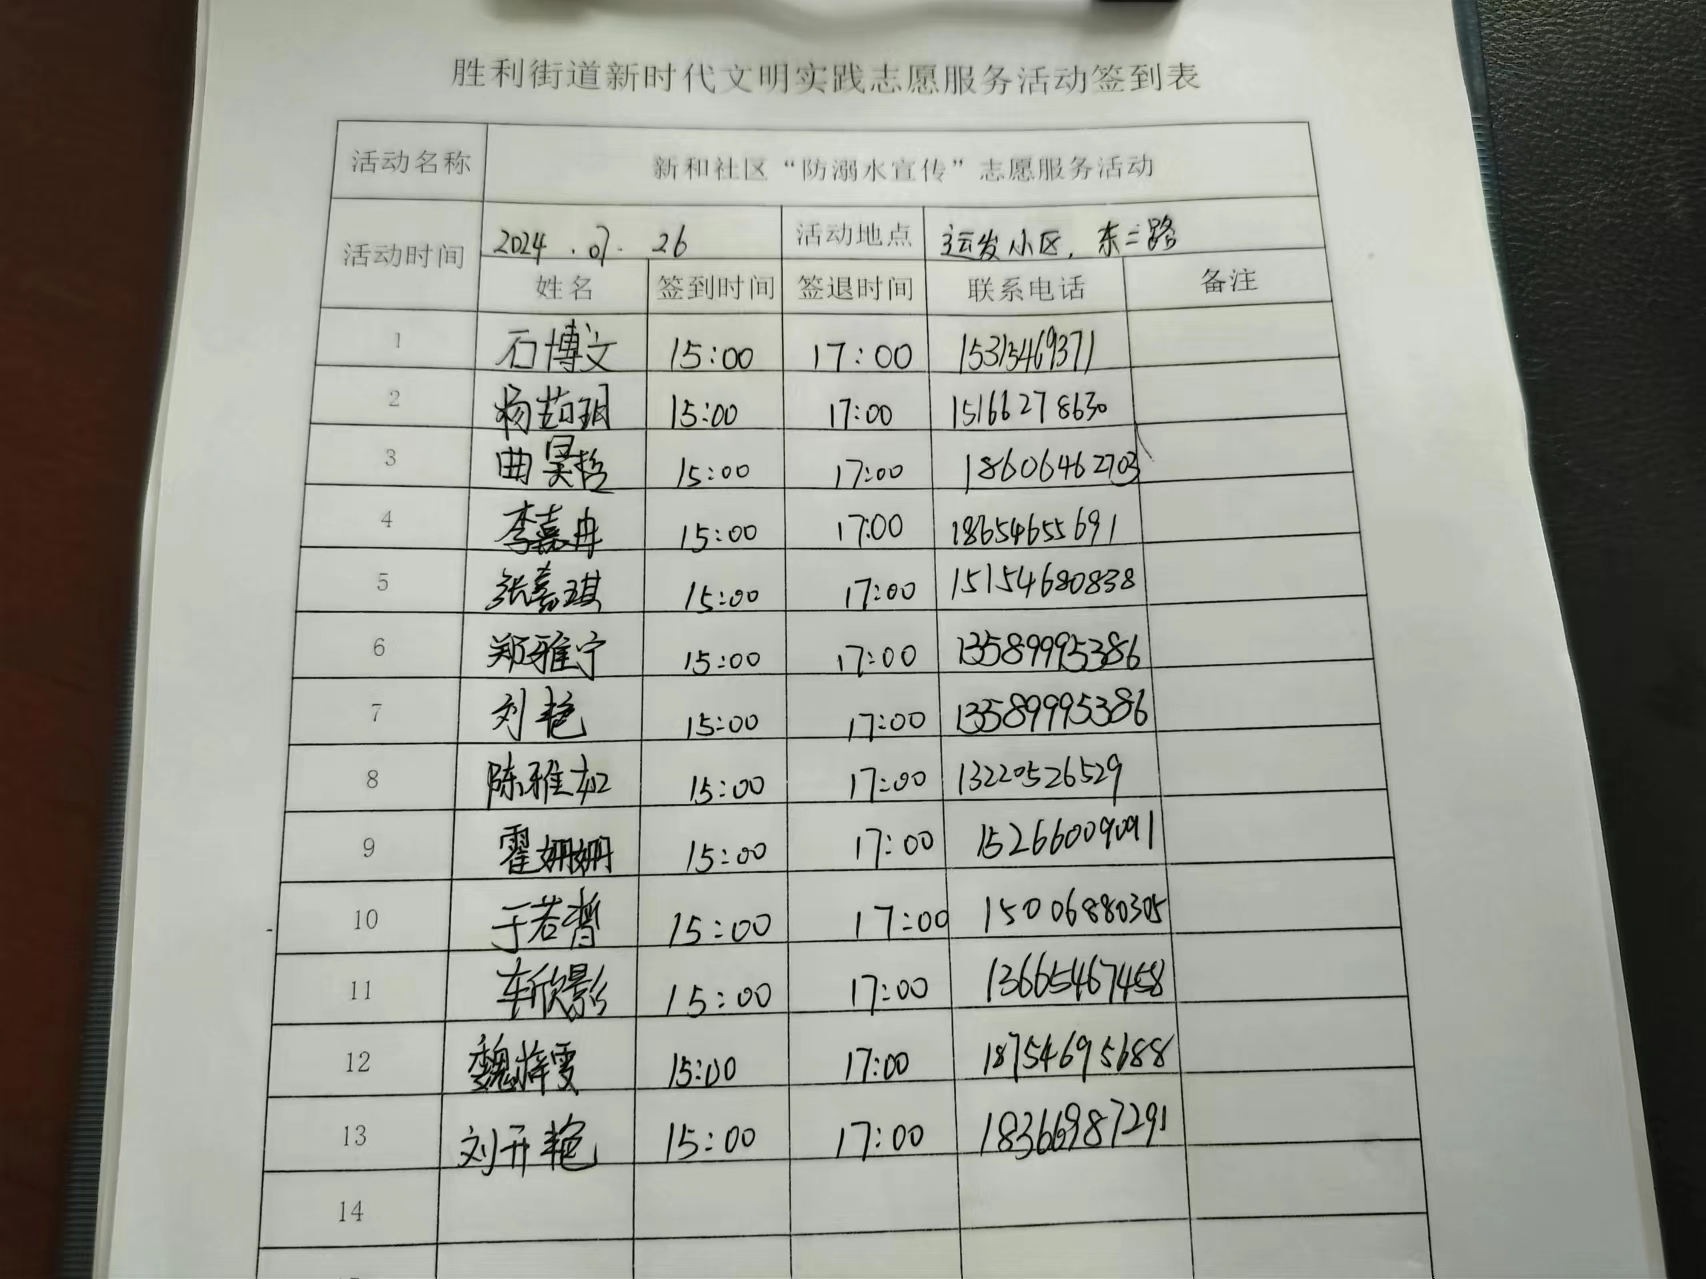 胜利街道新时代文明实践志愿服务活动签到表
活动名称 新和社区“防溺水宣传”志愿服务活动
活动时间 2024.07.26 活动地点 运发小区，东二路
姓名 签到时间 签退时间 联系电话 备注
1 石博文 15:00 17:00 15315469371
2 杨茹玥 15:00 17:00 15166278630
3 曲昊哲 15:00 17:00 18606462703
4 李嘉冉 15:00 17:00 18654655691
5 张嘉琪 15:00 17:00 15154680838
6 郑雅宁 15:00 17:00 13589995386
7 刘艳 15:00 17:00 13589995386
8 陈雅如 15:00 17:00 13220526529
9 霍姗姗 15:00 17:00 15266009091
10 于若晳 15:00 17:00 15006880305
11 车欣影 15:00 17:00 13665467458
12 魏梓雯 15:00 17:00 18754695688
13 刘开艳 15:00 17:00 18366987291
14